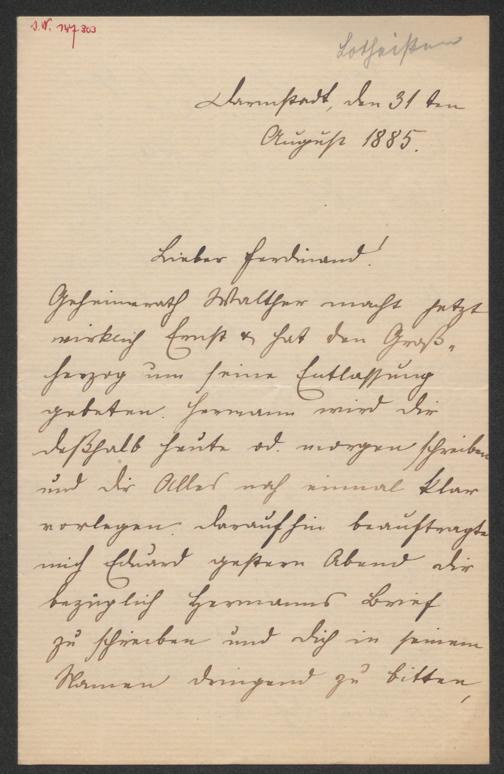 J.N. 747 303
Lotheißen
Darmstadt, den 31 ten
August 1885.
Lieber Ferdinand!
Geheimerath Walther macht jetzt
wirklich Ernst & hat den Groß-
herzog um seine Entlassung
gebeten. Hermann wird dir
deßhalb heute od. morgen schreiben
und dir Alles noch einmal klar
vorlegen. Daraufhin beauftragte
mich Eduard gestern Abend dir
bezüglich Hermanns Brief
zu schreiben und dich in seinem
Namen dringend zu bitten,